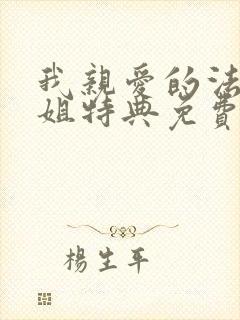 我親愛的法
姐特典免費
楊生平